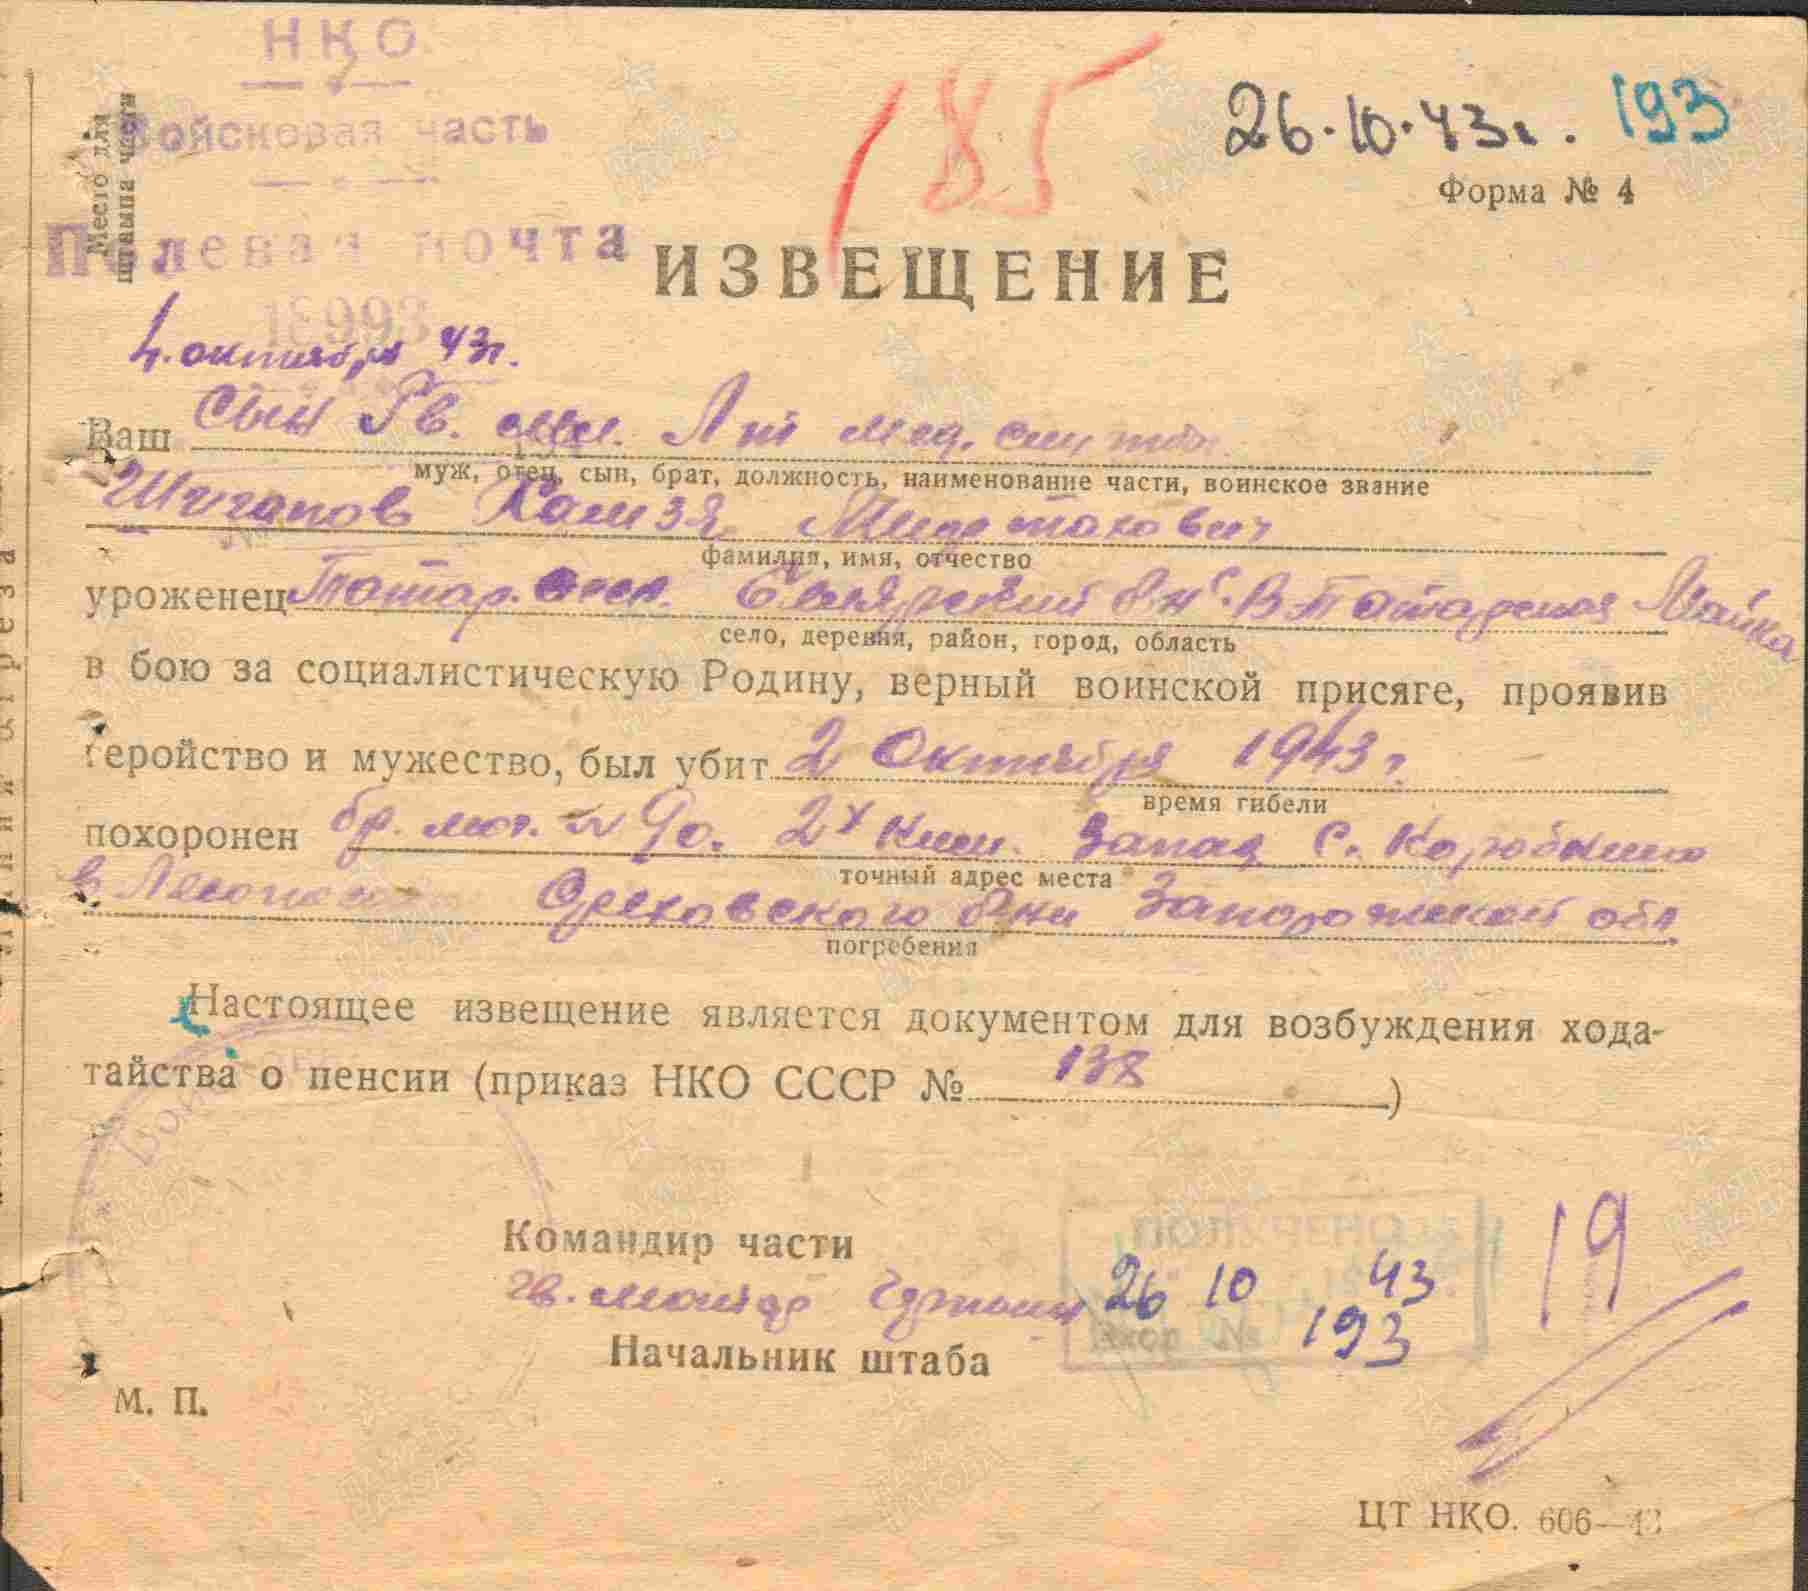 НКО
Войсковая часть
Полевая почта
Место для
штампа части
185
26.10.43г. 193
Форма № 4
ИЗВЕЩЕНИЕ
4 октября 43г.
Ваш Сын Гв. мл. Л-т мед. службы
муж, отец, сын, брат, должность, наименование части, воинское звание
Шигапов
фамилия, имя, отчество
уроженец Татар. р-н с. В Татарская Майна
село, деревня, район, город, область
в бою за социалистическую Родину, верный воинской присяге, проявив
геройство и мужество, был убит 2 Октября 1943 г.
время гибели
похоронен бр. мог. № 90. 2х клм. Запад с. Коробкино
точный адрес места
в Ореховского р-на Запорожской обл.
погребения
Настоящее извещение является документом для возбуждения хода-
тайства о пенсии (приказ НКО СССР № 138 )
Командир части
гв. майор
ПОЛУЧЕНО
26 10 43
Вход № 193
19
Начальник штаба
М. П.
ЦТ НКО. 606—43